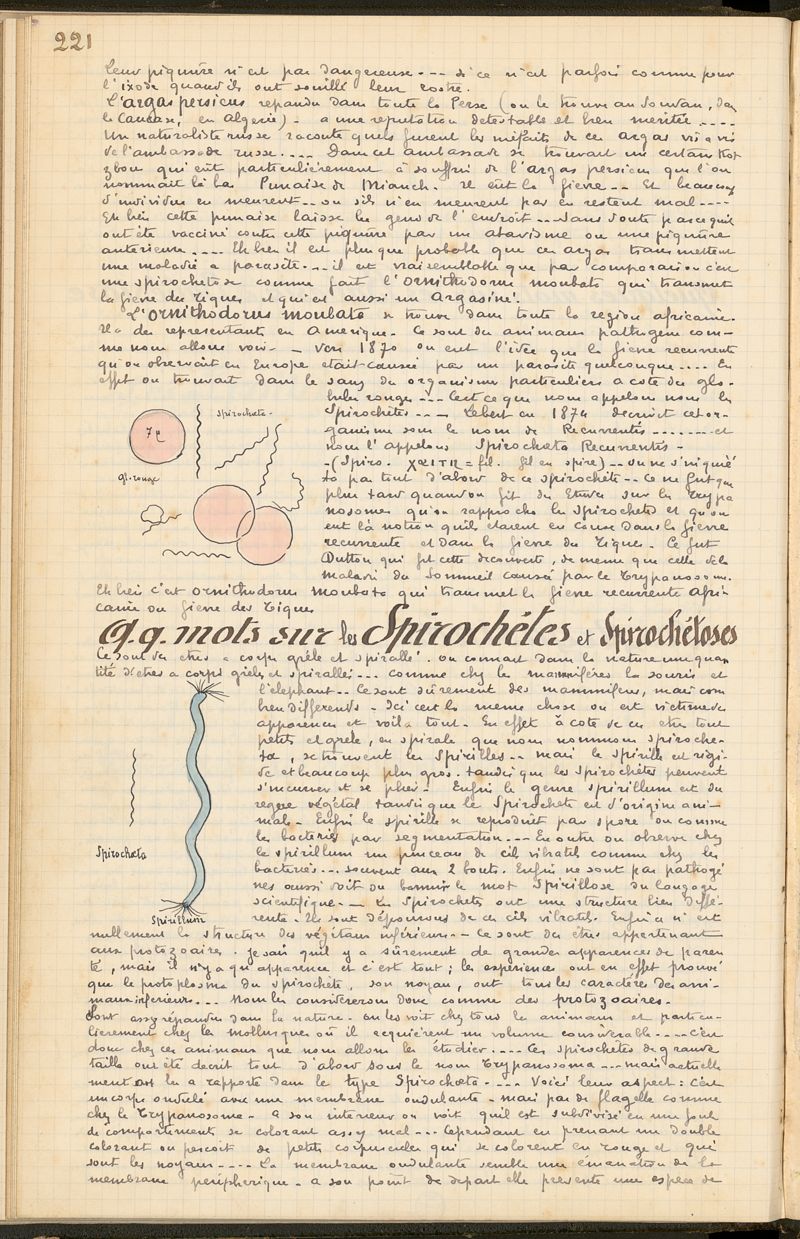 221
Leur piqûre n'est pas dangereuse... si ce n'est parfois comme pour
l'ixode quand ils ont souillé leur rostre.
L'argas persicus repandu dans toute la Perse (on le trouve au Soudan, dans
le Caucase, en Algerie) - a une reputation detestable et bien meritée....
Un naturaliste russe raconte quels furent les méfaits de ces argas vis a vis
de l'ambassade russe.... Dans cet ambassade se trouvait un certain Kot
zbou qui eût particulièrement à souffrir de l'argas persicus que l'on
nommait là bas Punaise de Mianeh. Il eût la fievre... Et beaucoup
d'individus en meurent... ou s'ils n'en meurent pas en restent mal....
Eh bien cette punaise laisse les gens de l'endroit... sans doute parce qu'ils
ont été vacciné contre cette piqûre par un atavisme ou une piqûre
anterieure.... Eh bien il est plus que probable que ces argas transmettent
une maladie a parasite... il est vraisemblable que par comparaison c'est
une spirochetose comme fait l'Ornithodorus moubata qui transmet
la fievre des Tiques et qui est aussi un Argasiné.
L'Ornithodorus moubata se trouve dans toute la region africaine.
Il a des representants en Amerique. Ce sont des animaux pathogenes com-
me nous allons voir. - Vers 1870 on eut l'idée que la fievre recurrente
qu'on observait en Europe etait causée par un parasite quelconque.... En
effet on trouvait dans le sang des organismes particuliers a coté des glo-
bules rouges... C'est ce que nous appelons nous les
Spirochètes... Lebert en 1874 decrivit cet or-
ganisme sous le nom de Recurrentis........ et
nous l'appelons Spirochæta Recurrentis -
- (Spiro. χαιτη = fil. fil en spire)... on ne s'inquié
ta pas tout d'abord de ce spirochète... Ce ne fut que
plus tard quand on fit des Etudes sur les Trypa
nosomes qu'on rapprocha les spirochetes et qu'on
eut là notion qu'ils etaient en cause dans la fievre
recurrente et dans la fievre des Tiques. Ce fut
Dutton qui fit cette decouverte, de meme que celle de la
maladie du Sommeil causée par le Trypanosome.
7 μ
spirochæte.
gl. rouge
Eh bien c'est Ornithodorus moubata qui transmet la fievre recurrente afri-
caine ou fievre des Tiques
Q.q. mots sur les Spirochétes et Spirochétoses
Ce sont des etres a corps grêle et spirallé. On connait dans la nature une quan
tité d'etres a corps grêles et spirallés... comme chez les mammifères la souris et
l'elephant... Ce sont sûrement des mammifères, mais com
bien differents. Ici c'est la meme chose on est victime des
apparences et voila tout. En effet à coté de ces etres tout
petits et grêle, en spirale que nous nommons spiroche-
tæ, se trouvent les Spirilles... mais le spirille est rigi-
de et beaucoup plus gros. tandis que les spirochètes peuvent
s'incurver et se plier. Enfin le genre spirillum est du
regne végétal tandis que le Spirochete est d'origine ani-
male. Enfin le spirille se reproduit par spore ou comme
les bacteries par segmentation... En outre on observe chez
le spirillum un pinceau de cils vibratils comme chez les
bacteries... souvent aux 2 bouts. Enfin ne sont pas pathogè
nes aussi doit on bannir le mot Spirillose du langage
scientifique. - Les Spirochets ont une structure bien diffé-
rente. Ils sont dépourvus de ces cils vibratils. Enfin ce n'est
Spirochæta
Spirillum
nullement la structure des végétaux inférieurs... Ce sont des êtres appartenant
aux protozoaires. Je sais qu'il y a sûrement de grandes apparences de paren
té, mais il n'y a qu'apparence et c'est tout ; les experiences ont en effet prouvé
que le protoplasma du spirochète, son noyau, ont tous les caractères des ani-
maux inferieurs... Nous les considererons donc comme des protozoaires.
Sont assez répandus dans la nature. On les voit chez tous les animaux et particu-
lièrement chez les mollusques où il acquièrent un volume considérable..... C'est
donc chez ces animaux que nous allons les étudier.... Ces spirochètes de grande
taille ont été decrit tout d'abord sous le nom Trypanosoma... mais actuelle
ment on les a rapporté dans le type Spirochæta.... Voici leur aspect : c'est
un corps ondulé avec une membrane ondulante - mais pas de flagelle comme
chez le Trypanosome. A son interieur on voit qu'il est subdivisé en une foule
de compartiments se colorant assez mal... Cependant en prenant un double
colorant on persoit de petits corpuscules qui se colorent en rouge et qui
sont les noyaux.... La membrane ondulante semble une émanation de la
membrane peripherique. A son point de depart elle presente une espece de